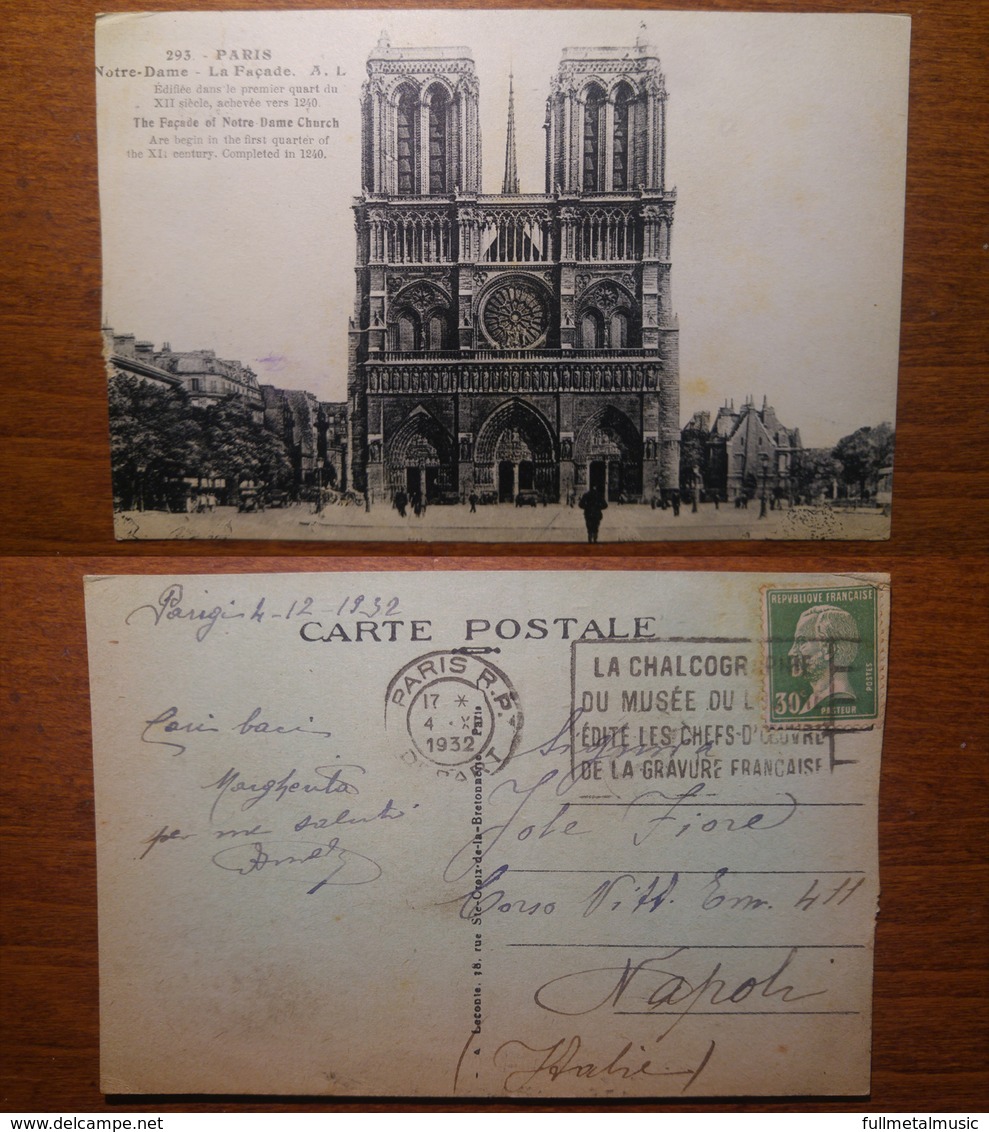 293. - PARIS
Notre-Dame - La Façade. A. L
Édifiée dans le premier quart du
XII siècle, achevée vers 1240.
The Façade of Notre Dame Church
Are begin in the first quarter of
the XII century. Completed in 1240.
Parigi 4-12-1932
CARTE POSTALE
REPVBLIQVE FRANÇAISE
POSTES
30
PASTEUR
PARIS R.P.
17 *
4 X
1932
DÉPART
LA CHALCOGRAPHIE
DU MUSÉE DU L
ÉDITE LES CHEFS-D'ŒUVRE
DE LA GRAVURE FRANÇAISE
Cari baci
Margherita
per me saluti
Signora
Jole Fiore
Corso Vitt. Em. 411
Napoli
(Italie)
A Leconte, 18, rue Ste-Croix-de-la-Bretonnerie, Paris
fullmetalmusic